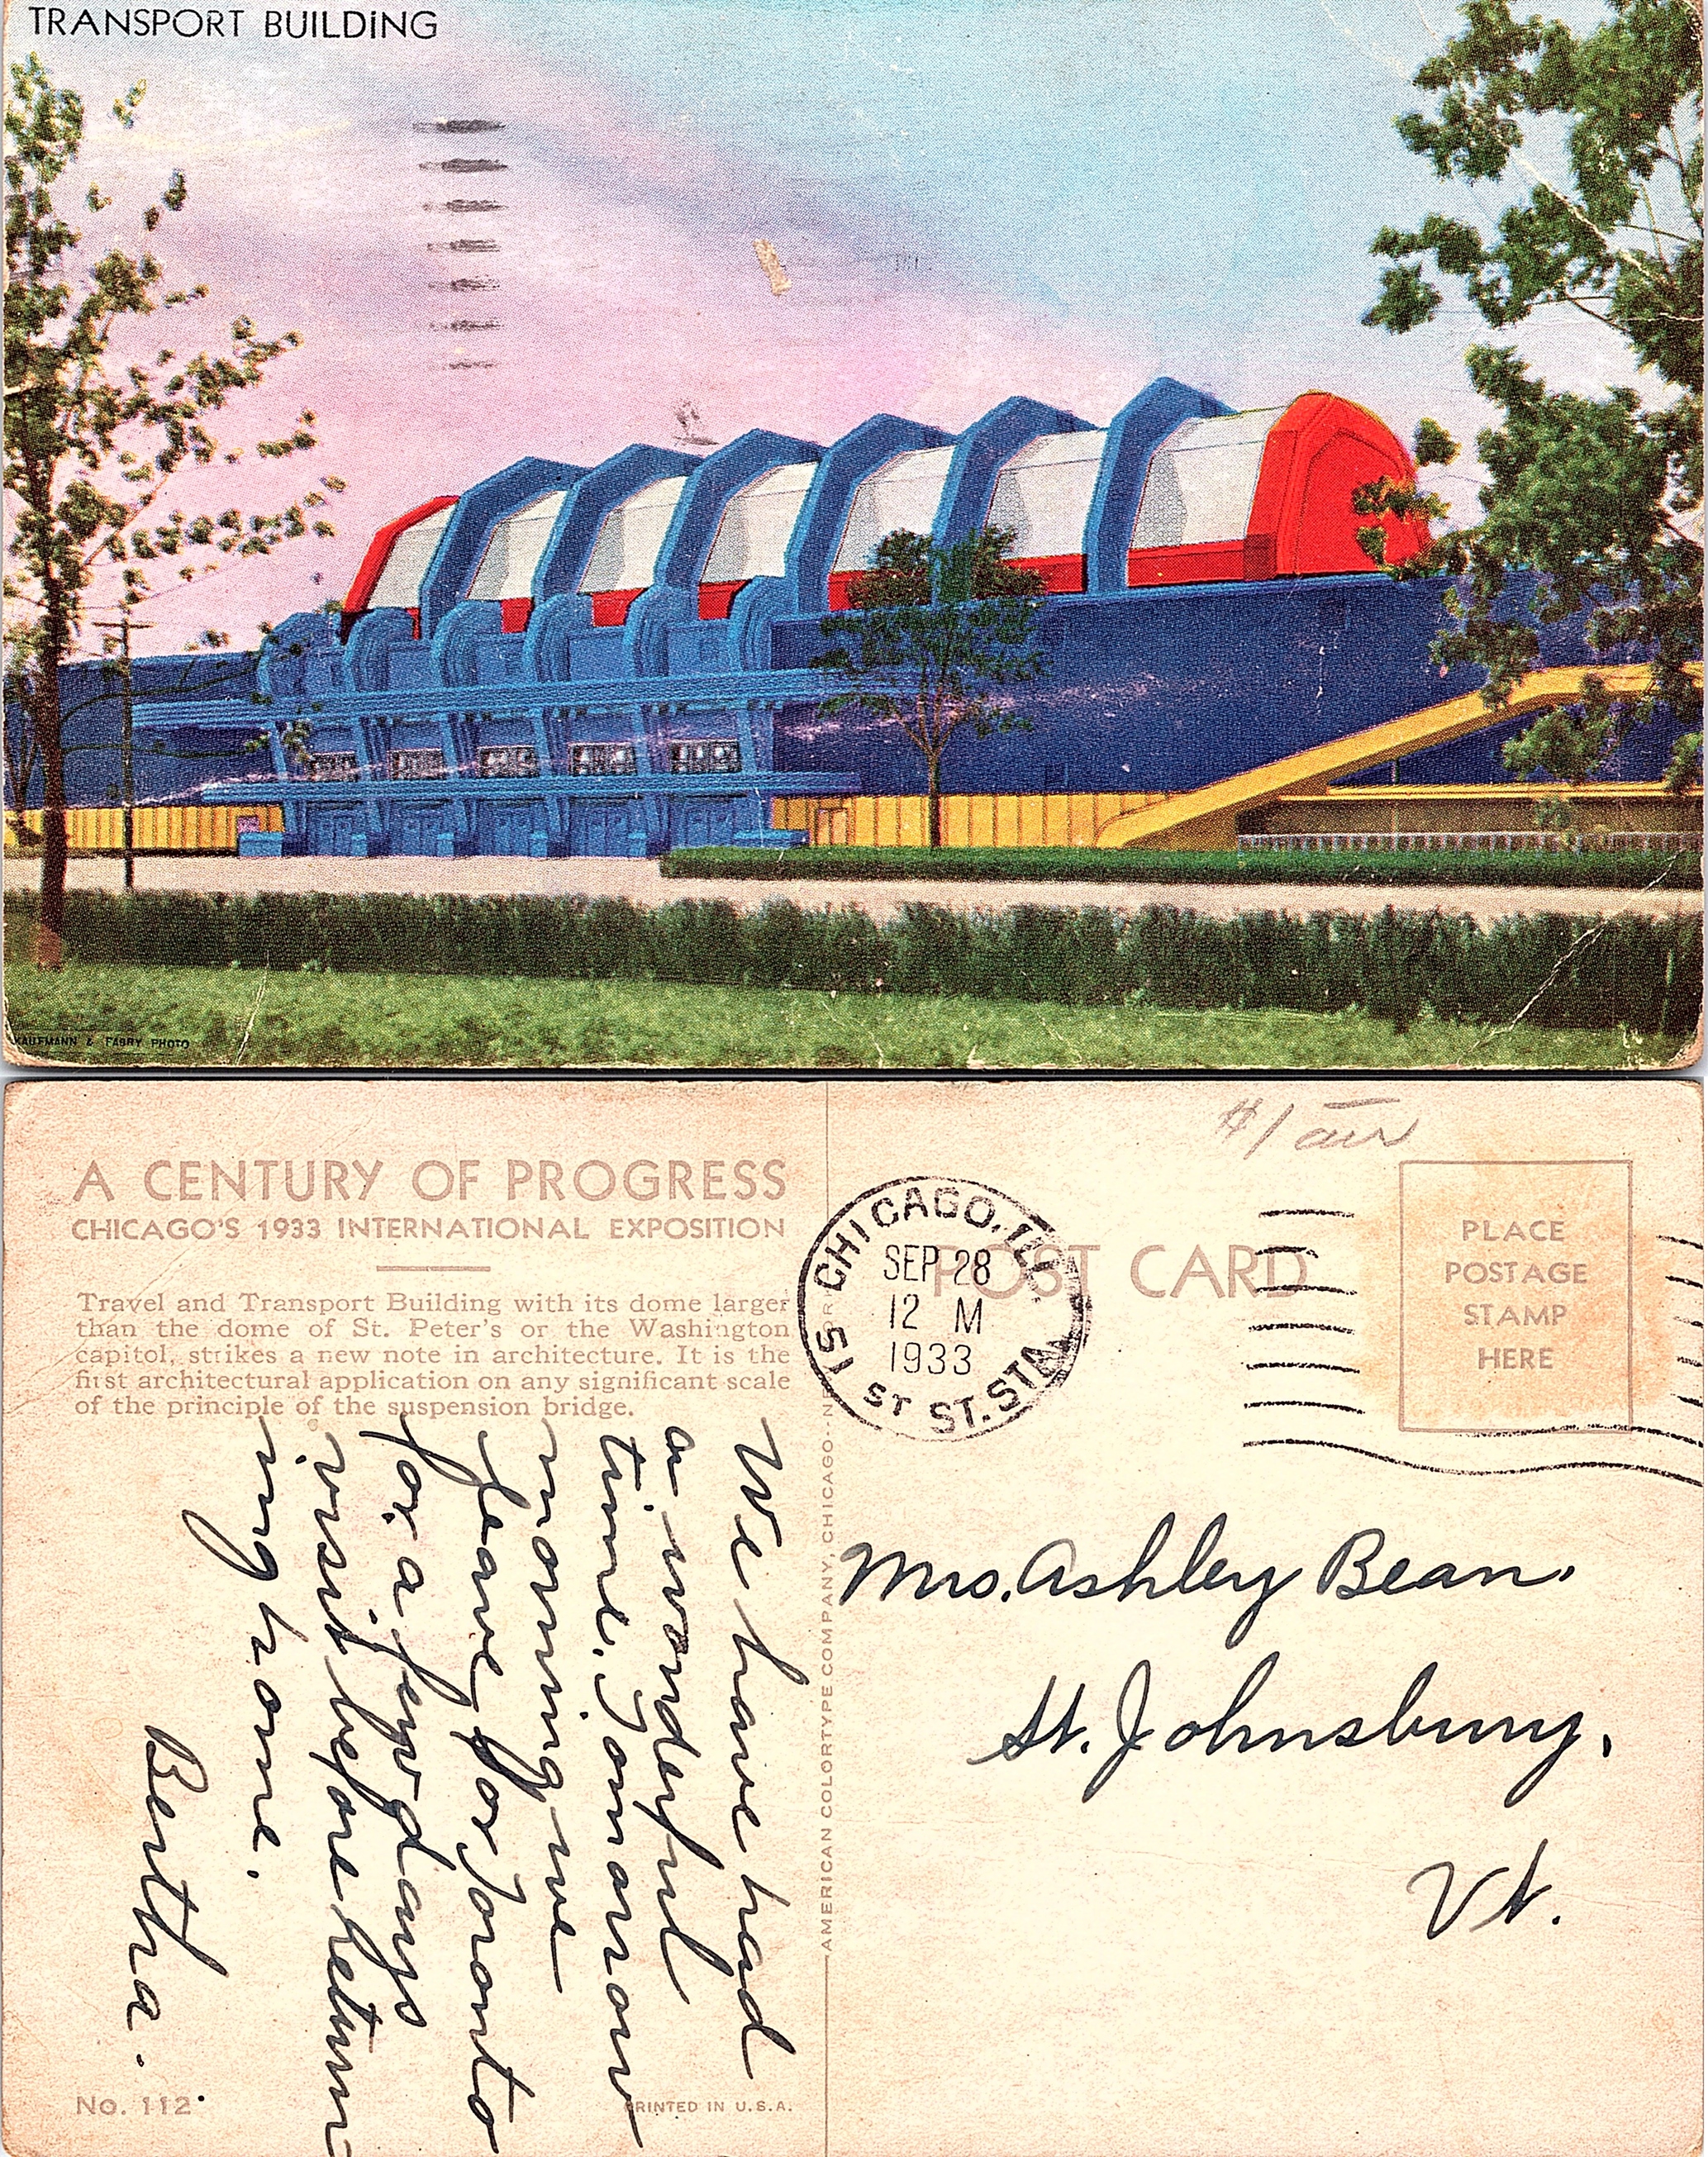 TRANSPORT BUILDING
KAUFMANN & FABRY PHOTO
A CENTURY OF PROGRESS
CHICAGO'S 1933 INTERNATIONAL EXPOSITION
Travel and Transport Building with its dome larger
than the dome of St. Peter's or the Washington
capitol, strikes a new note in architecture. It is the
first architectural application on any significant scale
of the principle of the suspension bridge.
We have had
a wonderful
time. Tomorrow
morning we
leave for Toronto
for a few days
visit before return
ing home.
Bertha.
No. 112
PRINTED IN U.S.A.
AMERICAN COLORTYPE COMPANY, CHICAGO
$1
POST CARD
CHICAGO, ILL.
SEP 28
12 M
1933
51 ST ST. STA.
PLACE
POSTAGE
STAMP
HERE
Mrs. Ashley Bean.
St. Johnsbury.
Vt.